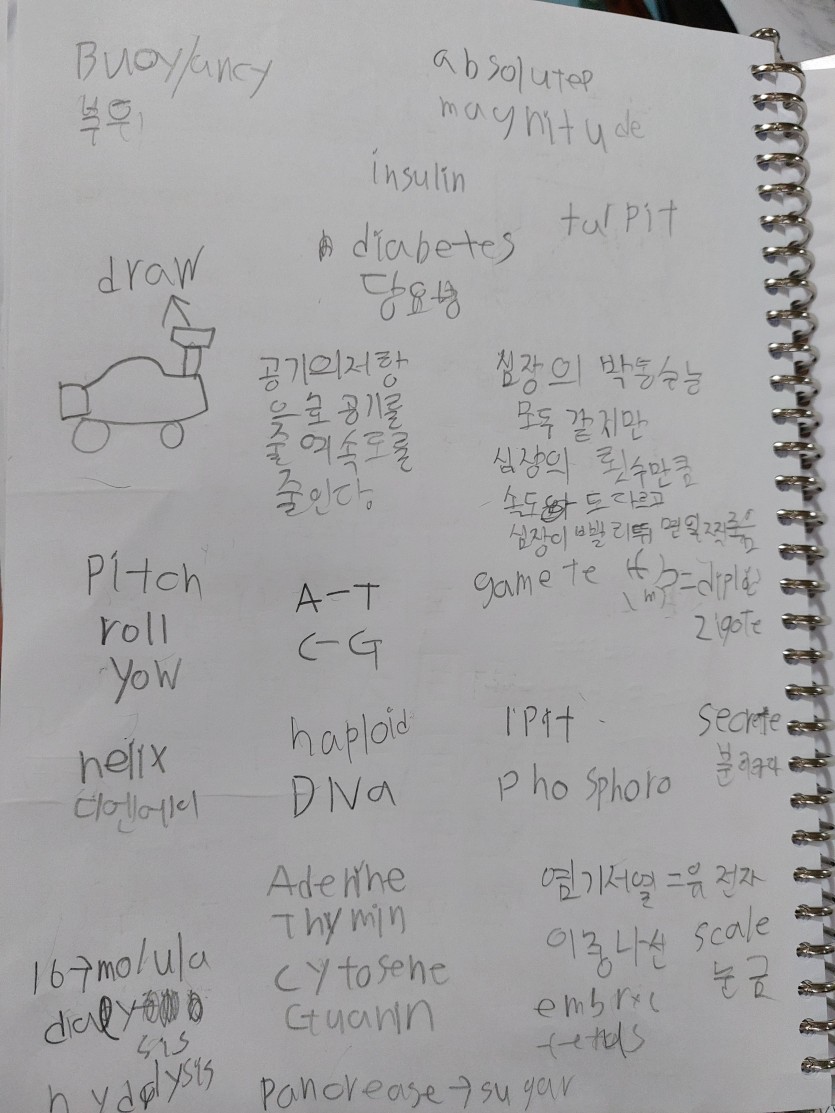 Buoyancy
absolutep
magnitude
insulin
tarpit
diabetes
당요병
draw
공기의저항
으로 공기를
줄여속도를
줄인다
심장의 박동수는
모두 같지만
심장의 횟수만큼
속도 다르고
심장이 빨리뛰면 일찍죽음
Pitch
roll
YoW
A-T
C-G
gamete
zigote
helix
디엔에이
haploid
DNa
secrete
Phosphoro
Adenine
Thymin
Cytosene
Guanin
염기서열=유전자
이중나선
scale
눈금
16→molula
sis
Pancrease→sugar